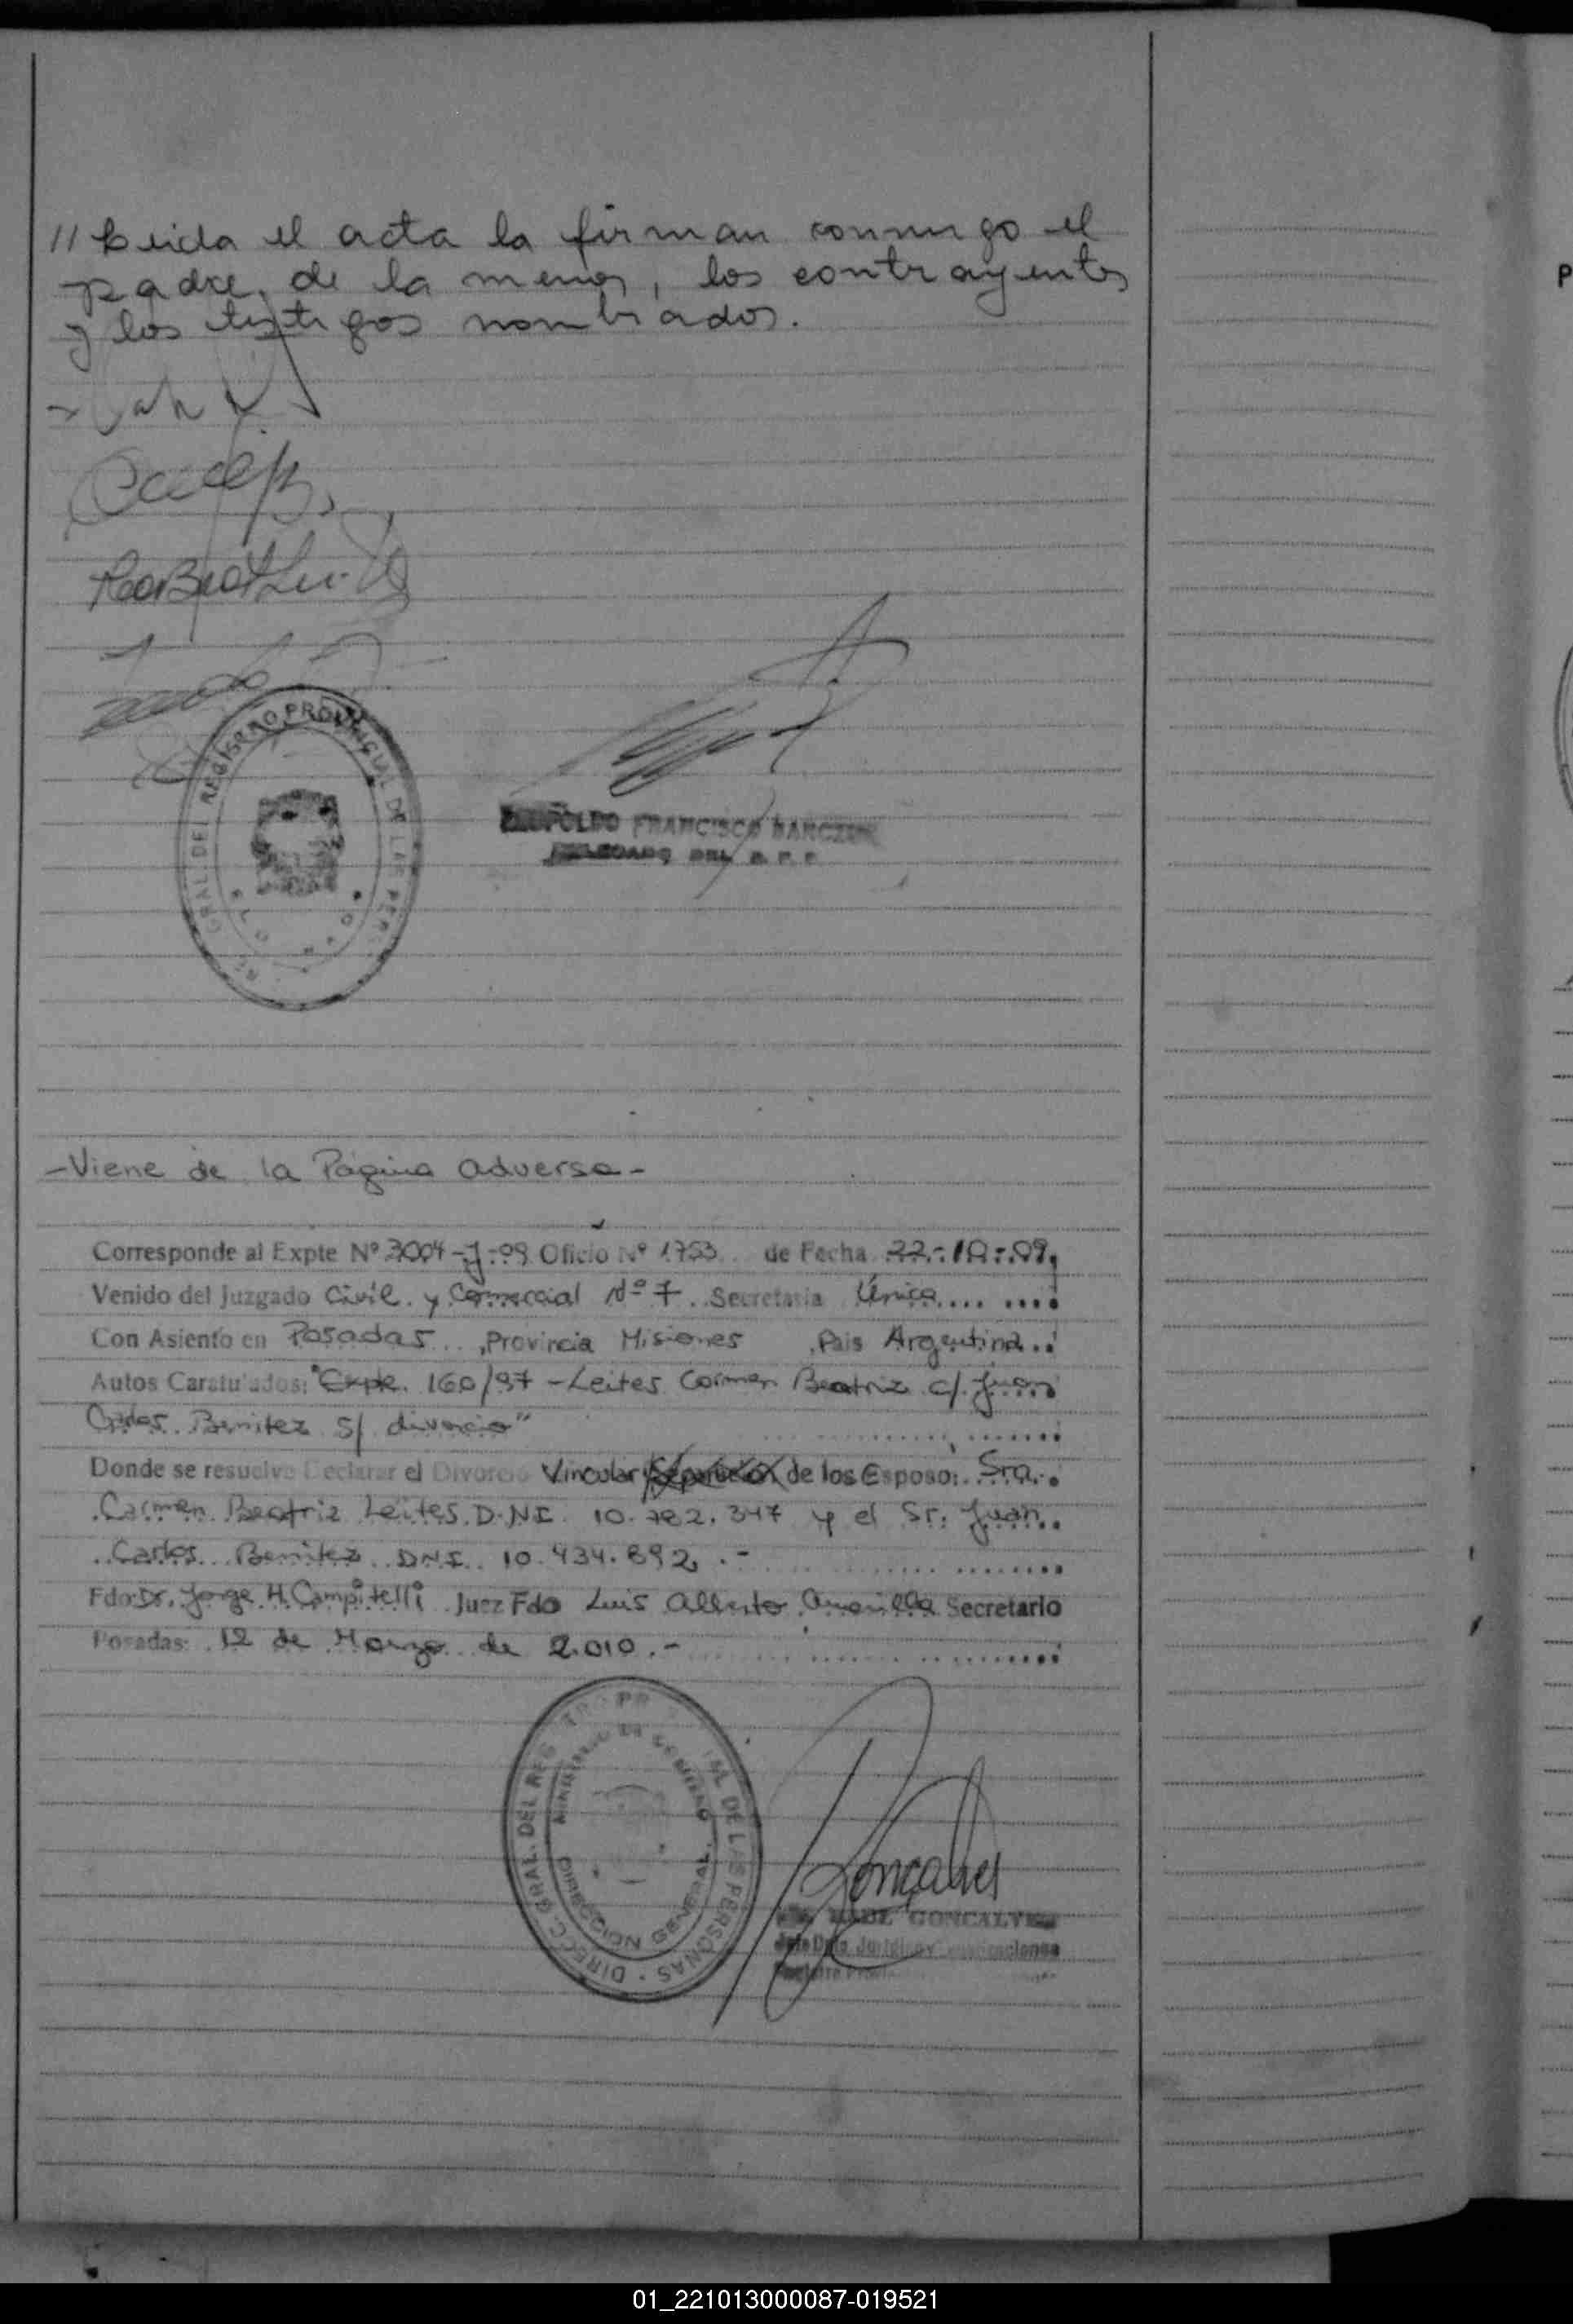 // Leida el acta la firman conmigo el
padre de la menor, los contrayentes
y los testigos nombrados.
REGISTRO PROVINCIAL DE LAS PER
GRAL. DEL
FRANCISCO
DEL R. P. P.
-Viene de la Página adversa-
Corresponde al Expte Nº 3004-J-09 Oficio Nº 1753 de Fecha 22-10-09,
Venido del Juzgado Civil y Comercial Nº 7 Secretaria Única
Con Asiento en Posadas, Provincia Misiones, Pais Argentina
Autos Caratulados: "Expte. 160/97 - Leites Carmen Beatriz c/ Juan
Carlos Benitez s/ divorcio"
Donde se resuelve Declarar el Divorcio Vincular de los Esposo: Sra.
Carmen Beatriz Leites D.N.I. 10.782.347 y el Sr. Juan
Carlos Benitez DNI. 10.434.892.-
Fdo Dr. Jorge H. Campitelli Juez Fdo Luis Alberto Secretario
Posadas: 12 de Marzo de 2.010.-
DIRECC. GRAL. DEL REG DE LAS PERSONAS
MINISTERIO DE GOBIERNO
DIRECCION GENERAL
Gonçalves
GONCALVES
01_221013000087-019521